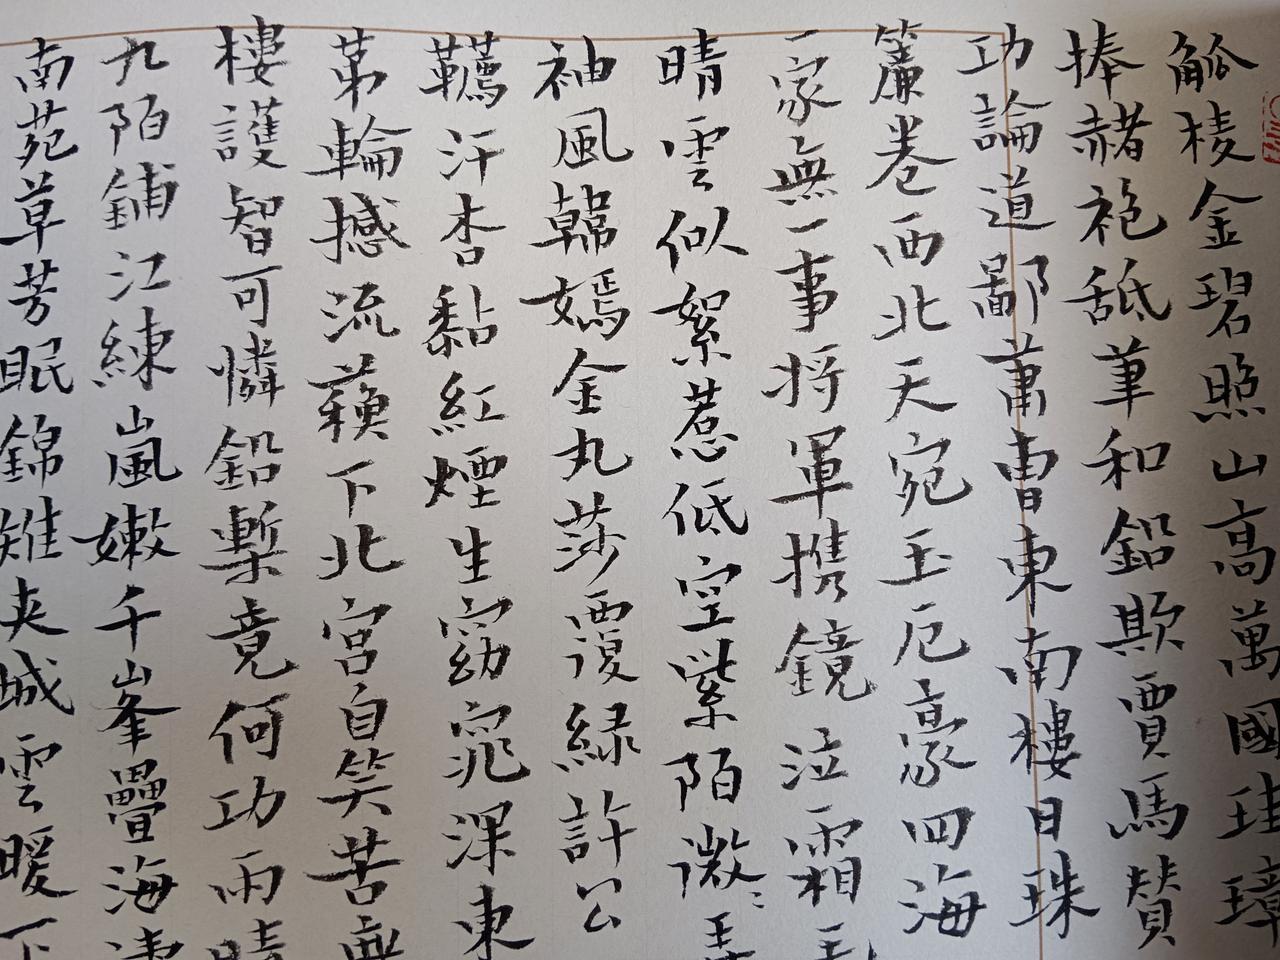 觚棱金碧照山高萬國珪璋
捧赭袍舐筆和鉛欺賈馬贊
功論道鄙蕭曹東南樓日珠
簾卷西北天宛玉厄豪四海
一家無一事將軍攜鏡泣霜
晴雲似絮惹低空紫陌微微
袖風韓嫣金丸莎覆綠許公
韉汗杏黏紅煙生窈窕深東
第輪撼流蘇下北宮自笑苦無
樓護智可憐鉛槧竟何功雨晴
九陌鋪江練嵐嫩千峯疊海濤
南苑草芳眠錦雉夾城雲暖下